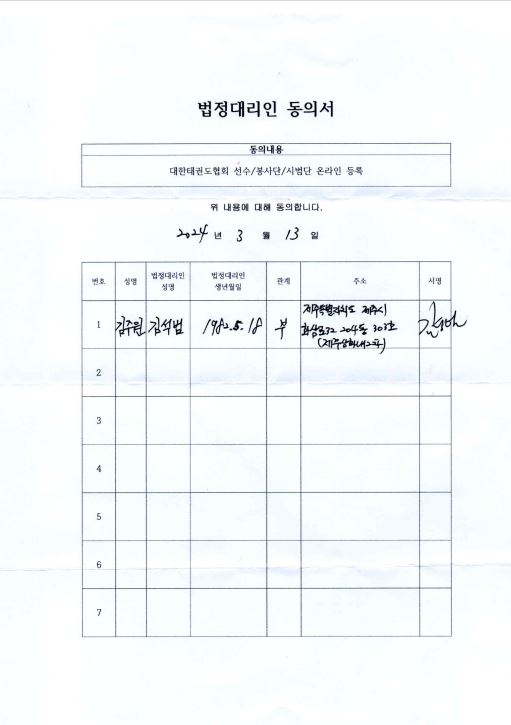 법정대리인 동의서
동의내용
대한태권도협회 선수/봉사단/시범단 온라인 등록
위 내용에 대해 동의합니다.
2024 년 3 월 13 일
번호 성명 법정대리인 성명 법정대리인 생년월일 관계 주소 서명
1 김주원 김석범 1982.5.18 부 제주특별자치도 제주시
화삼로32 204동 303호
2
3
4
5
6
7